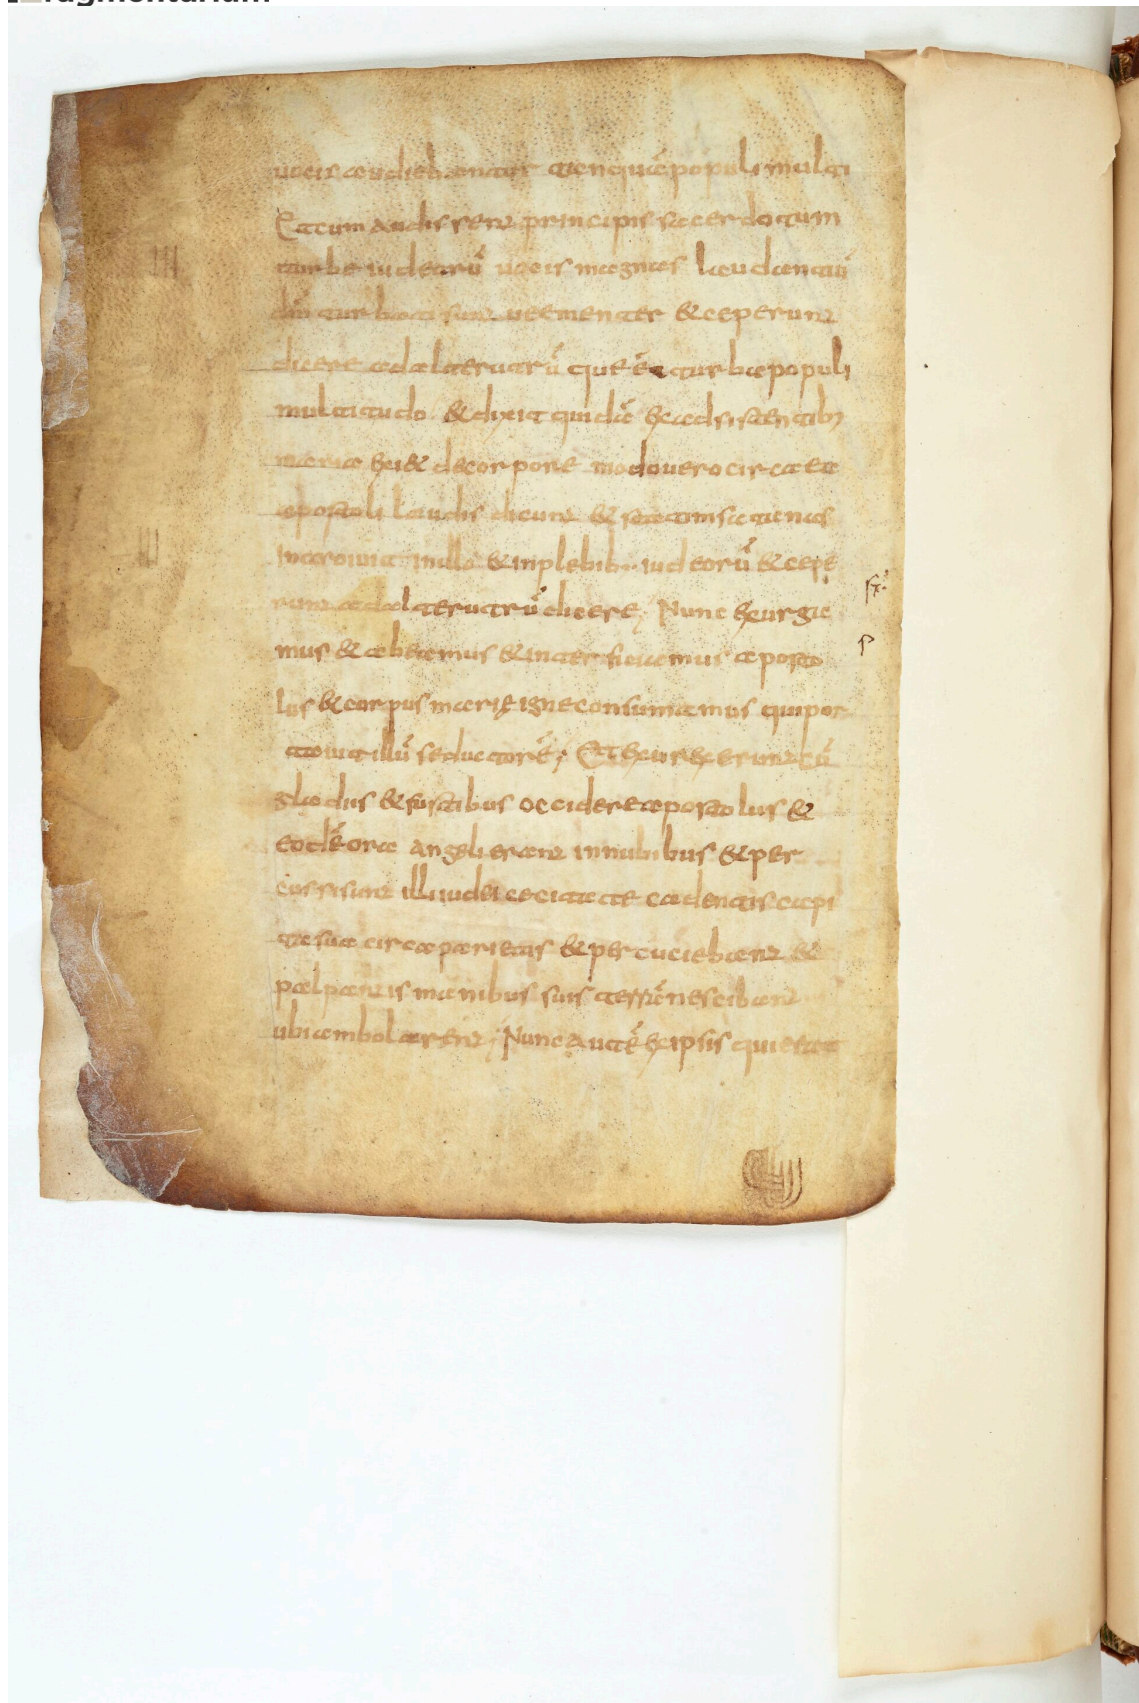 uocis audiebantur tanquā populi multi
Et cum audissent principis sacerdotum
turbe iudeorū uocis magnas laudantiū
dn̄i turbati sunt uehementer & ceperunt
dicere ad alterutrū que ē turba populi
multitudo & dixit quidā ex adsistentib;
maria exi& de corpore modo uero circa ea
apostoli laudis dicunt & statim satanas
introiuit in illa & in plebib; iudeorū & cepe
runt ad alterutrū dicere; Nunc exurga
mus & abeamus & interficiamus aposto
lus & corpus marię igne consumamus qui por
tauit illū seductorē; Et exurexerunt cū
gladiis & fustibus occidere apostolus &
eodē ora angeli erant in nubibus & per
cussi sunt illi iudei cecitate cadentis capi
ta sua circa parietis & percuciebant &
palpantis manibus suis terrā nescibant
ubi ambolarent; Nunc autē ex ipsis qui erat